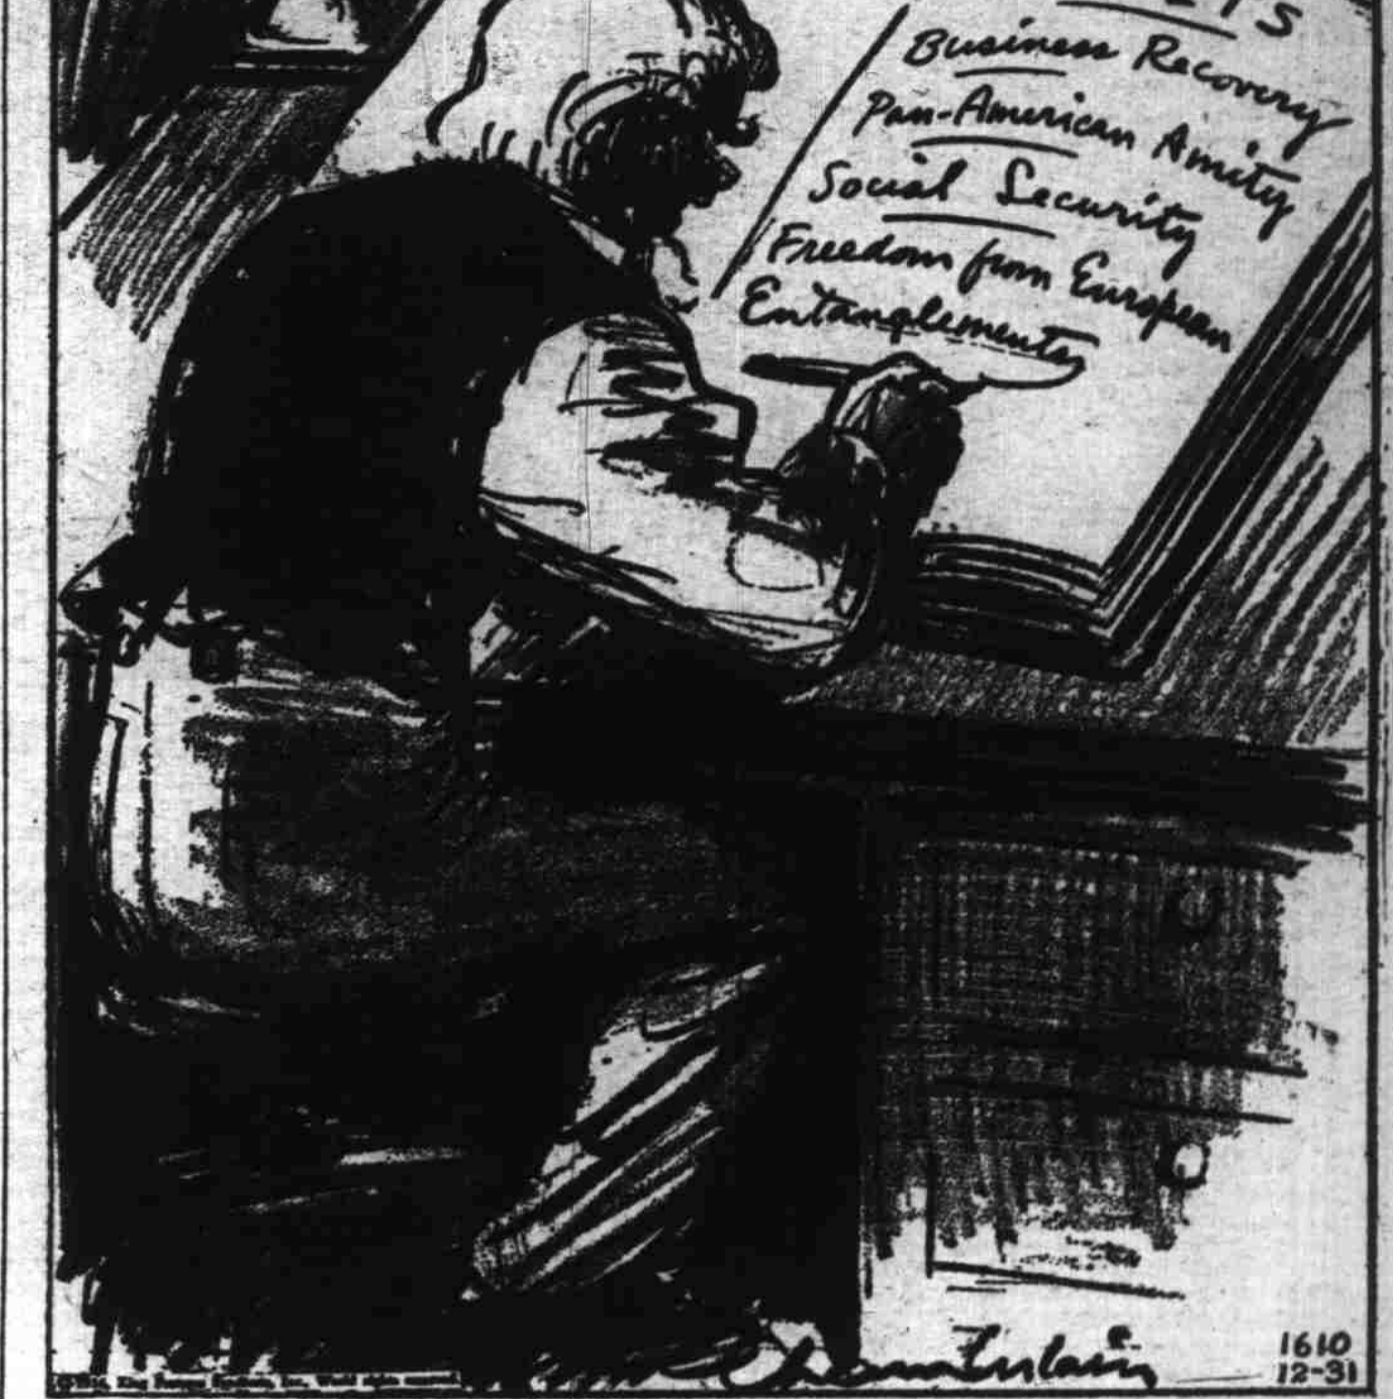 Business Recovery
Pan-American Amity
Social Security
Freedom from European
Entanglements
Chamberlain
1610
12-31